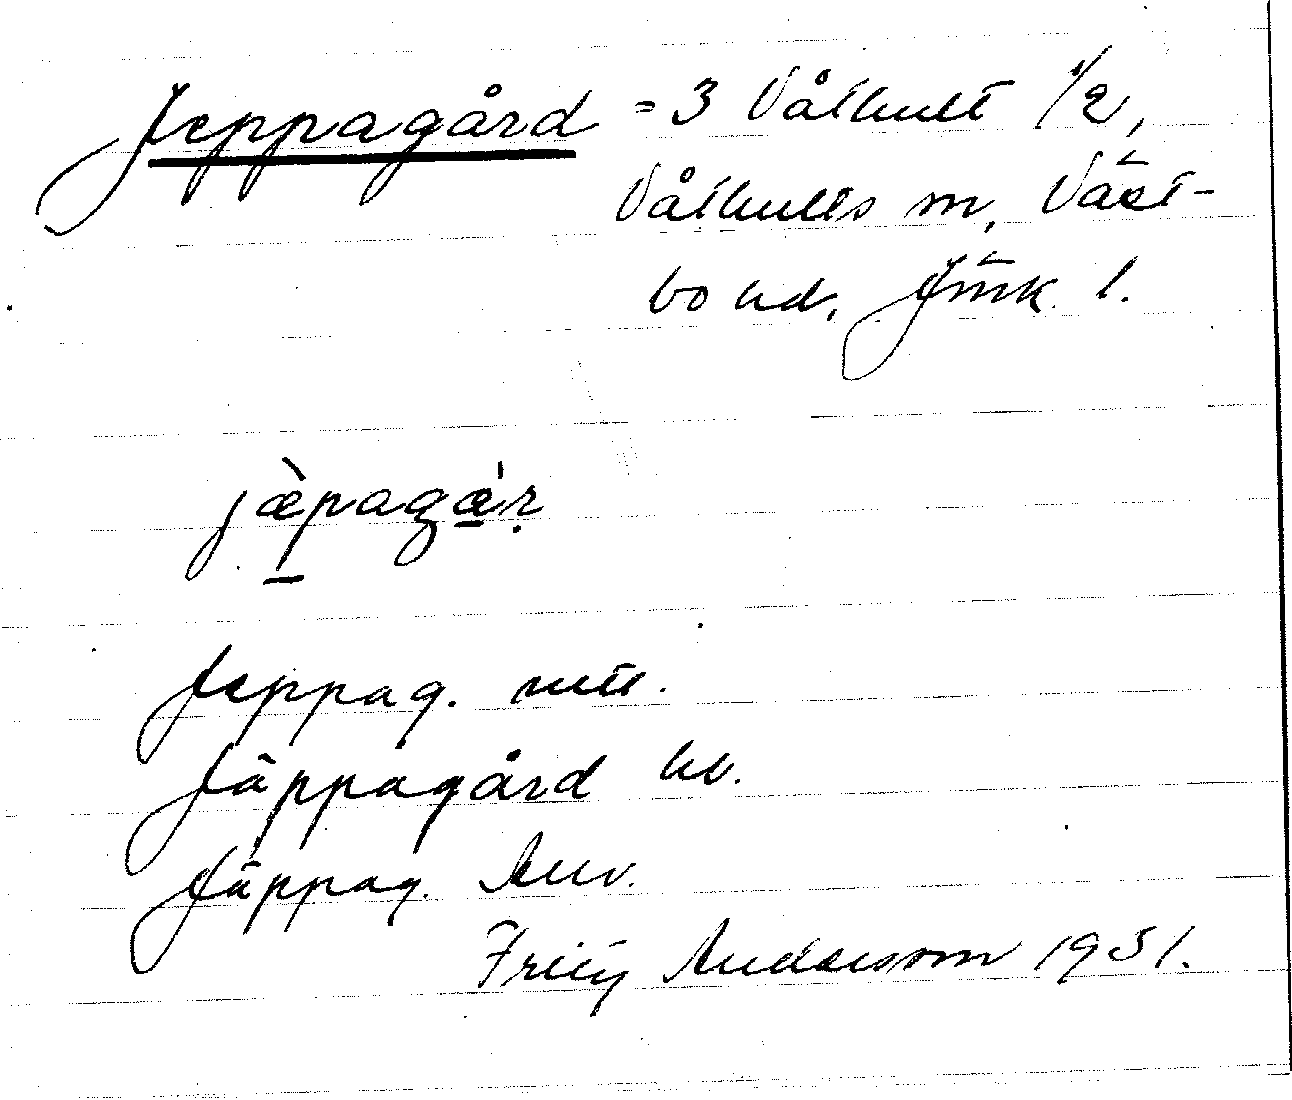 Jeppagård = 3 Våthult 1/2,
Våthults sn, Väst-
bo hd, Jönk. l.
jæ̀pagǽr
Jeppag. mtl.
Jäppagård hv.
Jäppag. Anv.
Fritz Andersson 1931.